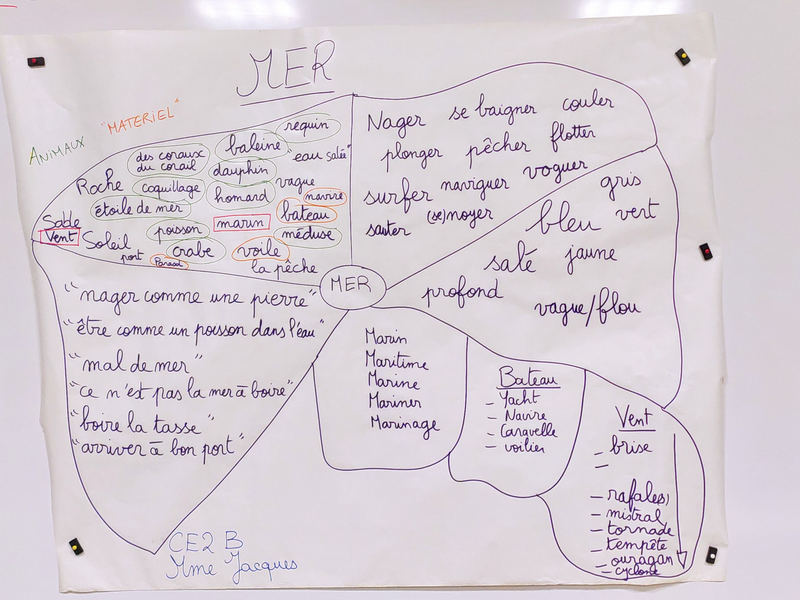 MER
ANIMAUX
"MATERIEL"
requin
des coraux du corail
baleine
"eau salée"
dauphin
Roche
coquillage
vague
homard
navire
étoile de mer
bateau
Sable
poisson
marin
méduse
Vent
Soleil
crabe
voile
port
Parasol
la pêche
Nager se baigner couler
plonger pêcher flotter
surfer naviguer voguer
sauter (se) noyer
gris
bleu vert
salé jaune
profond
vague/flou
MER
"nager comme une pierre"
"être comme un poisson dans l'eau"
"mal de mer"
"ce n'est pas la mer à boire"
"boire la tasse"
"arriver à bon port"
Marin
Maritime
Marine
Mariner
Marinage
Bateau
- Yacht
- Navire
- Caravelle
- voilier
Vent
- brise
-
- rafale(s)
- mistral
- tornade
- tempête
- ouragan
- cyclone
CE2 B
Mme Jacques